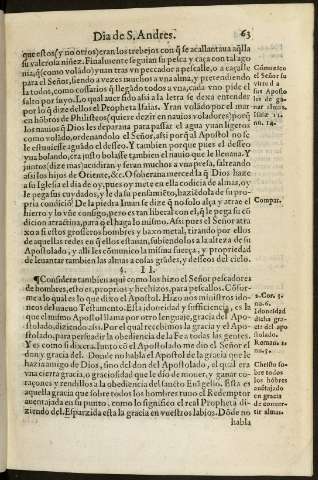 Dia de S. Andres.
63
que estos (y no otros) eran los trebejos con q̃ se acallantaua aq̃lla
su valerosa niñez. Finalmente seguian su pesca y caça con tal ago
nia, q̃ (como volado) yuan tras vn peccador a pescalle, o a caçalle
para el Señor, siendo a vezes muchos a vna alma, y pretendiendo
la todos, como cossarios q̃ llegado todos a vna, cada vno pide el
salto por suyo. Lo qual aueriido assi a la letra se dexa entender
por lo q̃ dize dellos el Propheta Isaias. Yran volado por el mar
en hõbros de Philisteos (quiere dezir en nauios voladores) porq̃
los nauios q̃ Dios les deparaua para passar el agua yuan ligetos
como volado, ordenandolo el Señor, assi porq̃ al Apostol no se
le estuuiesse aguado el desseo. Y tambien porque pues el desseo
yua bolando, era justo bolasse tambien el nauio que le lleuaua. Y
juntos (dize mas) acudiran y seran muchos a vna presa, salteando
assi los hijos de Oriente, &c. O soberana merced la q̃ Dios haze
a su Iglesia el dia de oy, pues oy mete en ella codicia de almas, oy
le pega sus cuydados, y le da su pensamiento, haziẽdola de su pro
pria condiciõ De la piedra Iman se dize q̃ no solo alça y atrae el
hierro y lo vñe consigo, pero es tan liberal con el, q̃ le pega su cõ
dicion atractiua, para q̃ el haga lo mismo. Assi pues el Señor atra
xo a si estos grosseros hombres y baxo metal, tirando por ellos
de aquellas redes en q̃ ellos estauan, subiendolos a la alteza de su
Apostolado, y alli les cõmunico la misma fuerça, y propriedad
de leuantar tambien las almas a cosas grãdes, y desseos del cielo.
§. II.
¶ Considera tambien aqui como los hizo el Señor pescadores
de hombres, esto es, proprios y hechizos, para pescallos. Cõfor-
me a lo qual es lo que dixo el Apostol. Hizo nos ministros ido-
neos del nueuo Testamento. Esta idoneidad y sufficiencia, es la
que el mismo Apostol llama por otro lenguaje, gracia del Apo-
stolado, diziendo assi. Por el qual recebimos la gracia y el Apo-
stolado, para persuadir la obediencia de la Fee a todas las gentes.
Y es como si dixera. Iunto cõ el Apostolado me dio el Señor el
don y gracia del. Donde no habla el Apostol de la gracia que le
hazia amigo de Dios, sino del don del Apostolado, al qual era
vna cierta gracia, o graciosidad que le dio de mouer, y ganar co-
raçones y rendillos a la obediencia del sancto Euãgelio. Esta es
aquella gracia que sobre todos los hombres tuuo el Redemptor
auentajada en su punto, como lo significò el real Propheta di-
ziendo del. Esparzida esta la gracia en vuestros labios. Dõde no
habla
Cõmunico
el Señor su
virtud a
sus Aposto
les de ga-
nar almas.
Isaiæ 11.
nu. 14.
Compar.
2. Cor. 3.
nu. 6.
Idoneidad
dicha gra-
cia del apo
stolado.
Roman. 1.
nu. 5.
Christo so-
bre todos
los hõbres
auentajado
en gracia
de conuer-
tir almas.